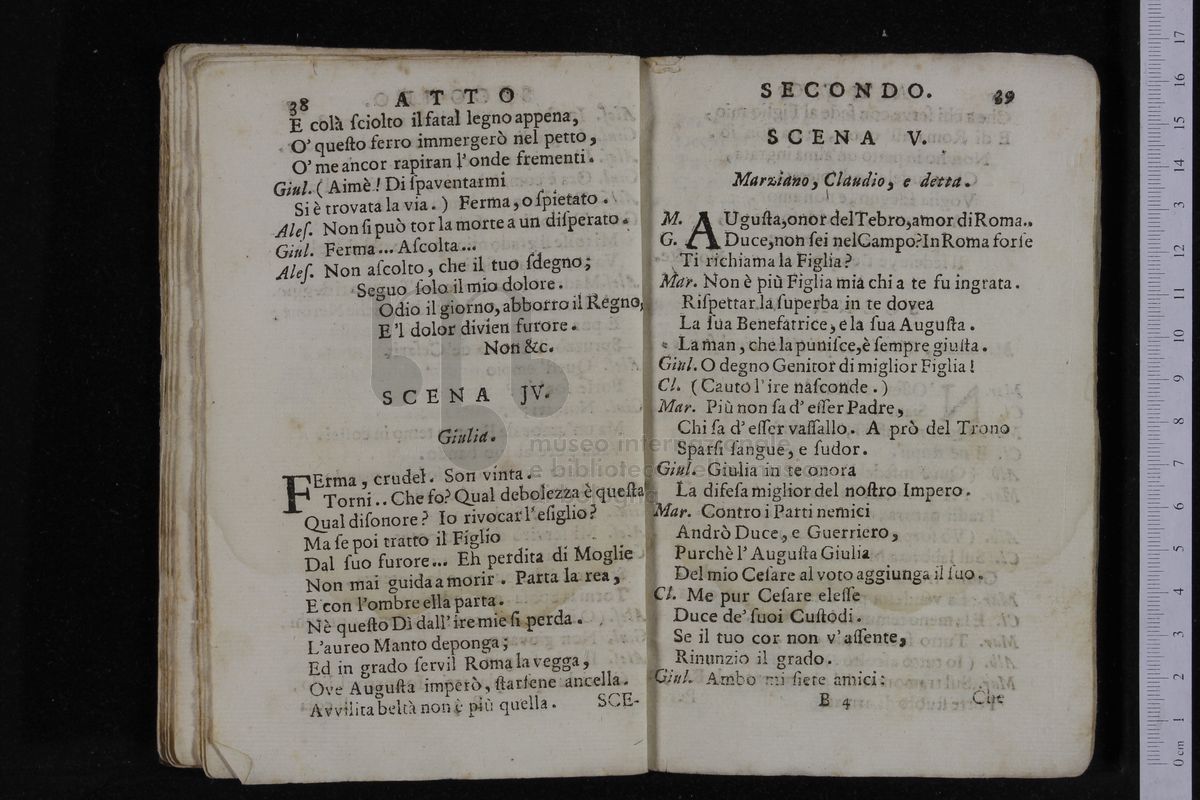 38 ATTO
E colà ſciolto il fatal legno appena,
O' queſto ferro immergerò nel petto,
O' me ancor rapiran l'onde frementi.
Giul. (Aimè! Di ſpaventarmi
Si è trovata la via.) Ferma, o ſpietato.
Aleſ. Non ſi può tor la morte a un diſperato.
Giul. Ferma... Aſcolta...
Aleſ. Non aſcolto, che il tuo ſdegno;
Seguo ſolo il mio dolore.
Odio il giorno, abborro il Regno,
E'l dolor divien furore.
Non &c.
SCENA JV.
Giulia.
FErma, crudel. Son vinta.
Torni.. Che fo? Qual debolezza è queſta
Qual diſonore? Io rivocar l'eſiglio?
Ma ſe poi tratto il Figlio
Dal ſuo furore... Eh perdita di Moglie
Non mai guida a morir. Parta la rea,
E con l'ombre ella parta.
Nè queſto Dì dall'ire mie ſi perda.
L'aureo Manto deponga;
Ed in grado ſervil Roma la vegga,
Ove Auguſta imperò, ſtarſene ancella.
Avvilita beltà non è più quella. SCE-
SECONDO. 39
SCENA V.
Marziano, Claudio, e detta.
M. AUguſta, onor del Tebro, amor di Roma..
G. Duce, non ſei nel Campo? In Roma forſe
Ti richiama la Figlia?
Mar. Non è più Figlia mia chi a te fu ingrata.
Riſpettar la ſuperba in te dovea
La ſua Benefatrice, e la ſua Auguſta.
La man, che la puniſce, è ſempre giuſta.
Giul. O degno Genitor di miglior Figlia!
Cl. (Cauto l'ire naſconde.)
Mar. Più non ſa d'eſſer Padre,
Chi ſa d'eſſer vaſſallo. A prò del Trono
Sparſi ſangue, e ſudor.
Giul. Giulia in te onora
La difeſa miglior del noſtro Impero.
Mar. Contro i Parti nemici
Andrò Duce, e Guerriero,
Purchè l'Auguſta Giulia
Del mio Ceſare al voto aggiunga il ſuo.
Cl. Me pur Ceſare eleſſe
Duce de' ſuoi Cuſtodi.
Se il tuo cor non v'aſſente,
Rinunzio il grado.
Giul. Ambo mi ſiete amici:
B 4 Che
museo internazionale
e biblioteca della musica
di bologna
0 cm 1 2 3 4 5 6 7 8 9 10 11 12 13 14 15 16 17